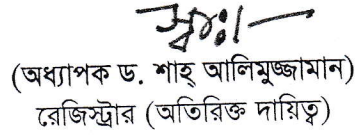 স্বাঃ/-
(অধ্যাপক ড. শাহ্ আলিমুজ্জামান)
রেজিস্ট্রার (অতিরিক্ত দায়িত্ব)